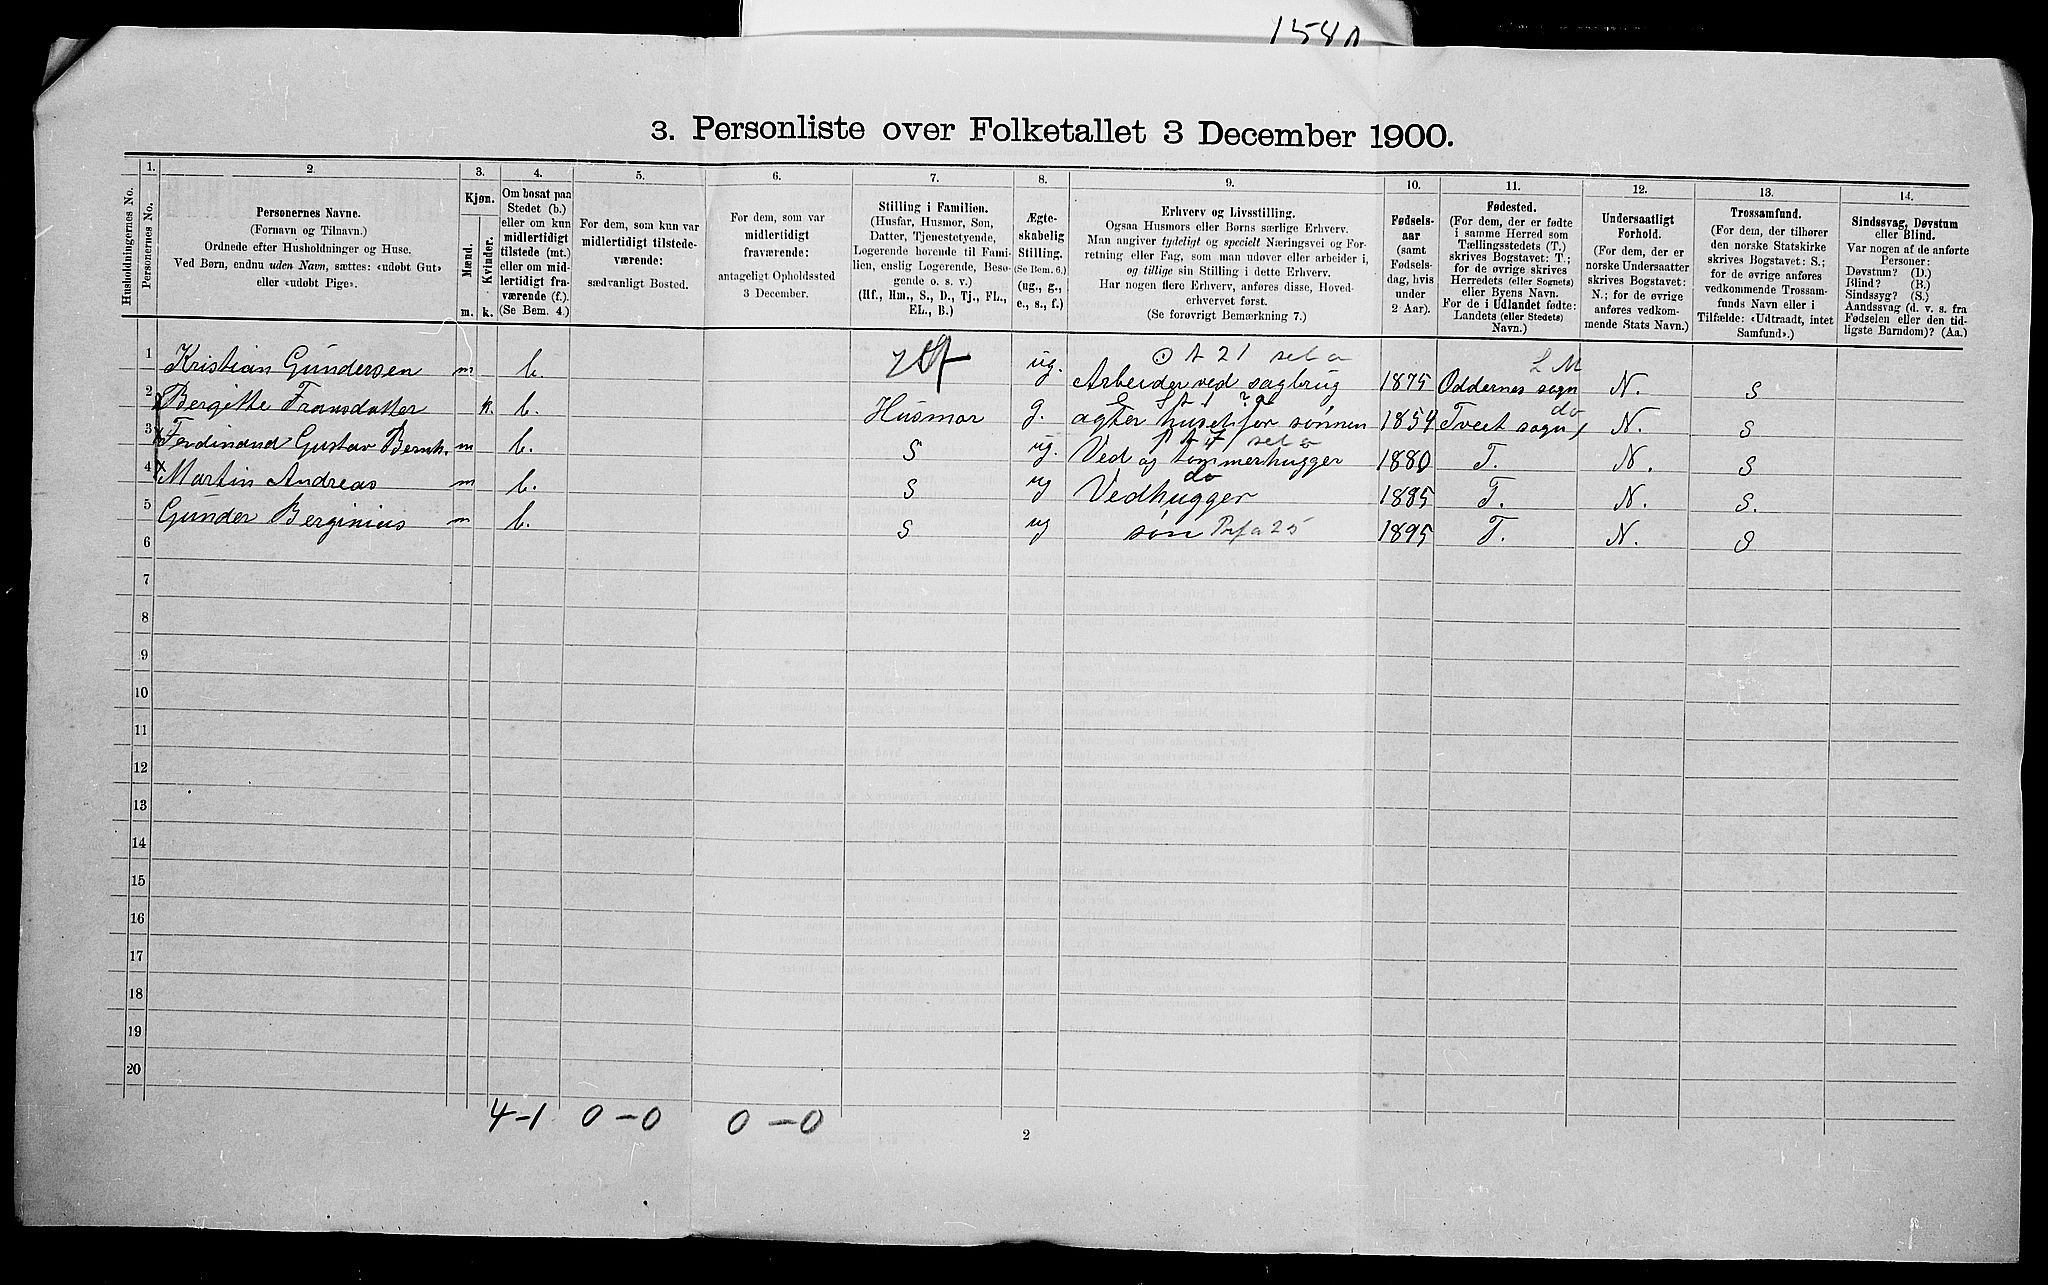 1580
3. Personliste over Folketallet 3 December 1900.
1. 2. 3. 4. 5. 6. 7. 8. 9. 10. 11. 12. 13. 14.
Husholdningernes No.
Personernes No.
Personernes Navne.
(Fornavn og Tilnavn.)
Ordnede efter Husholdninger og Huse.
Ved Børn, endnu uden Navn, sættes: «udøbt Gut»
eller «udøbt Pige».
Kjøn.
Mænd.
Kvinder.
m. k.
Om bosat paa
Stedet (b.)
eller om kun
midlertidigt
tilstede (mt.)
eller om mid-
lertidigt fra-
værende (f.).
(Se Bem. 4.)
For dem, som kun var
midlertidigt tilstede-
værende:
sædvanligt Bosted.
For dem, som var
midlertidigt
fraværende:
antageligt Opholdssted
3 December.
Stilling i Familien.
(Husfar, Husmor, Søn,
Datter, Tjenestetyende,
Logerende hørende til Fami-
lien, enslig Logerende, Besø-
gende o. s. v.)
(Hf., Hm., S., D., Tj., FL.,
EL., B.)
Ægte-
skabelig
Stilling.
(Se Bem. 6.)
(ug., g.,
e., s., f.)
Erhverv og Livsstilling.
Ogsaa Husmors eller Børns særlige Erhverv.
Man angiver tydeligt og specielt Næringsvei og For-
retning eller Fag, som man udøver eller arbeider i,
og tillige sin Stilling i dette Erhverv.
Har nogen flere Erhverv, anføres disse, Hoved-
erhvervet først.
(Se forøvrigt Bemærkning 7.)
Fødsels-
aar
(samt
Fødsels-
dag, hvis
under
2 Aar).
Fødested.
(For dem, der er fødte
i samme Herred som
Tællingsstedets (T.)
skrives Bogstavet: T.;
for de øvrige skrives
Herredets (eller Sognets)
eller Byens Navn.
For de i Udlandet fødte:
Landets (eller Stedets)
Navn.)
Undersaatligt
Forhold.
(For dem, der er
norske Undersaatter
skrives Bogstavet:
N.; for de øvrige
anføres vedkom-
mende Stats Navn.)
Trossamfund.
(For dem, der tilhører
den norske Statskirke
skrives Bogstavet: S.;
for de øvrige anføres
vedkommende Trossam-
funds Navn eller i
Tilfælde: «Udtraadt, intet
Samfund».)
Sindssvag, Døvstum
eller Blind.
Var nogen af de anførte
Personer:
Døvstum? (D.)
Blind? (B.)
Sindssyg? (S.)
Aandssvag (d. v. s. fra
Fødselen eller den tid-
ligste Barndom)? (Aa.)
1 Kristian Gundersen m b. ug. Arbeider ved sagbrug 1875 Oddernes sogn N. S
2 Bergitte Fransdatter k. b. Husmor g. agter huset for sønnen 1854 Tveit sogn N. S
3 Ferdinand Gustav Bernh. m b. S ug. Ved og tømmerhugger 1880 T. N. S
4 Martin Andreas m b. S ug Vedhugger 1885 T. N. S.
5 Gunder Berginius m b. S ug søn 1895 T. N. S
6
7
8
9
10
11
12
13
14
15
16
17
18
19
20
4-1 0-0 0-0
2